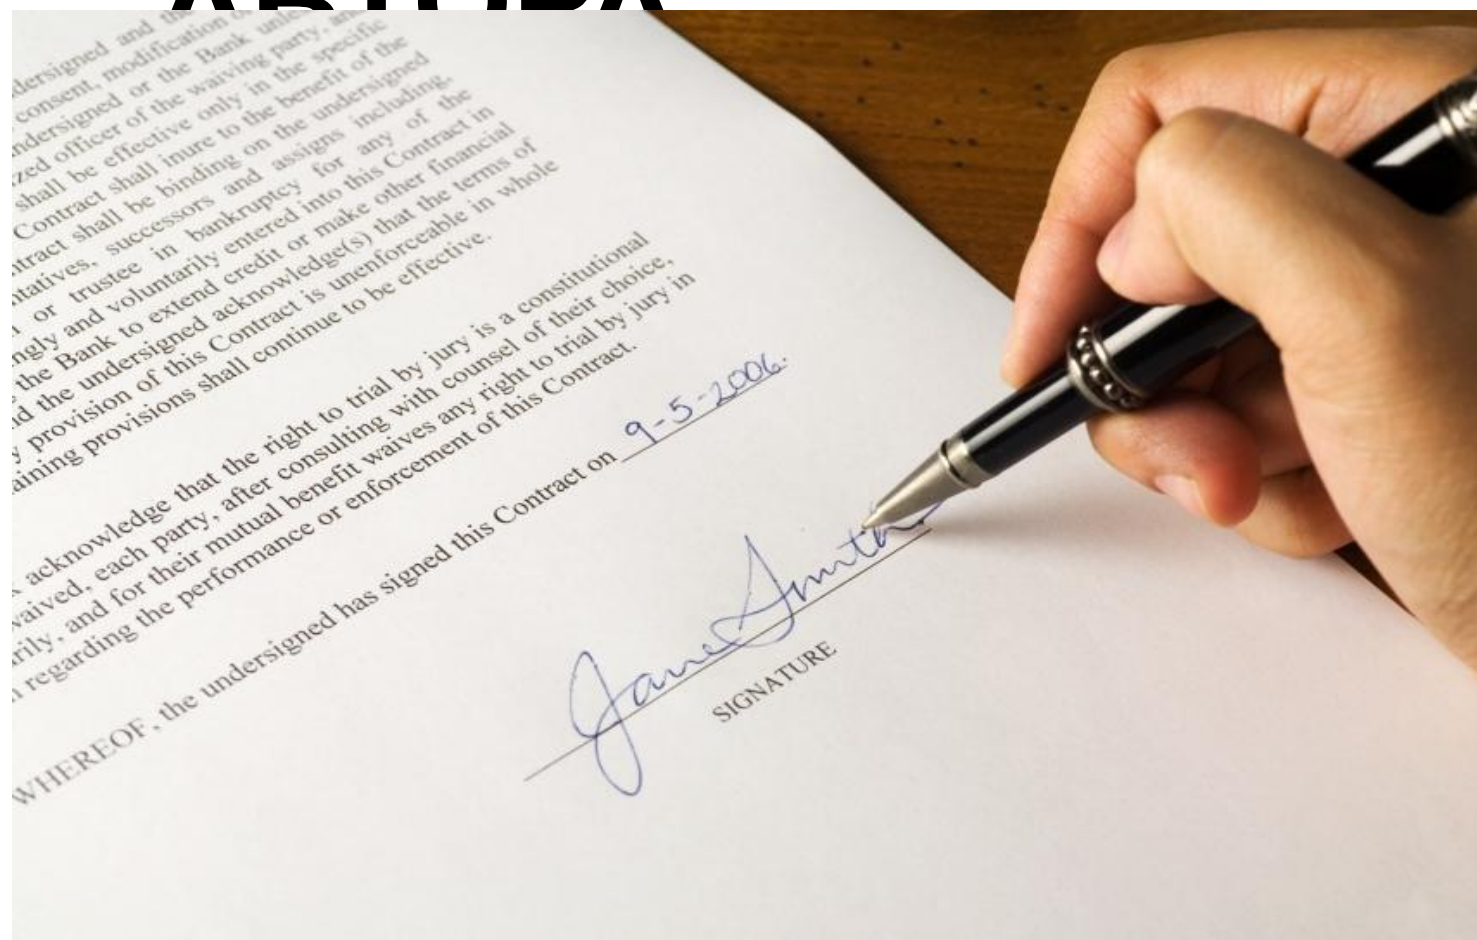 undersigned and the
consent, modification
undersigned or the Bank
officer of the waiving party,
shall be effective only in the specific
Contract shall inure to the benefit of the
shall be binding on the undersigned
successors and assigns including,
or trustee in bankruptcy for any of the
and voluntarily entered into this Contract in
the Bank to extend credit or make other financial
the undersigned acknowledge(s) that the terms of
provision of this Contract is unenforceable in whole
provisions shall continue to be effective.
acknowledge that the right to trial by jury is a constitutional
waived, each party, after consulting with counsel of their choice,
and for their mutual benefit waives any right to trial by jury in
regarding the performance or enforcement of this Contract.
WHEREOF, the undersigned has signed this Contract on 9-5-2006.
Jane Smith
SIGNATURE